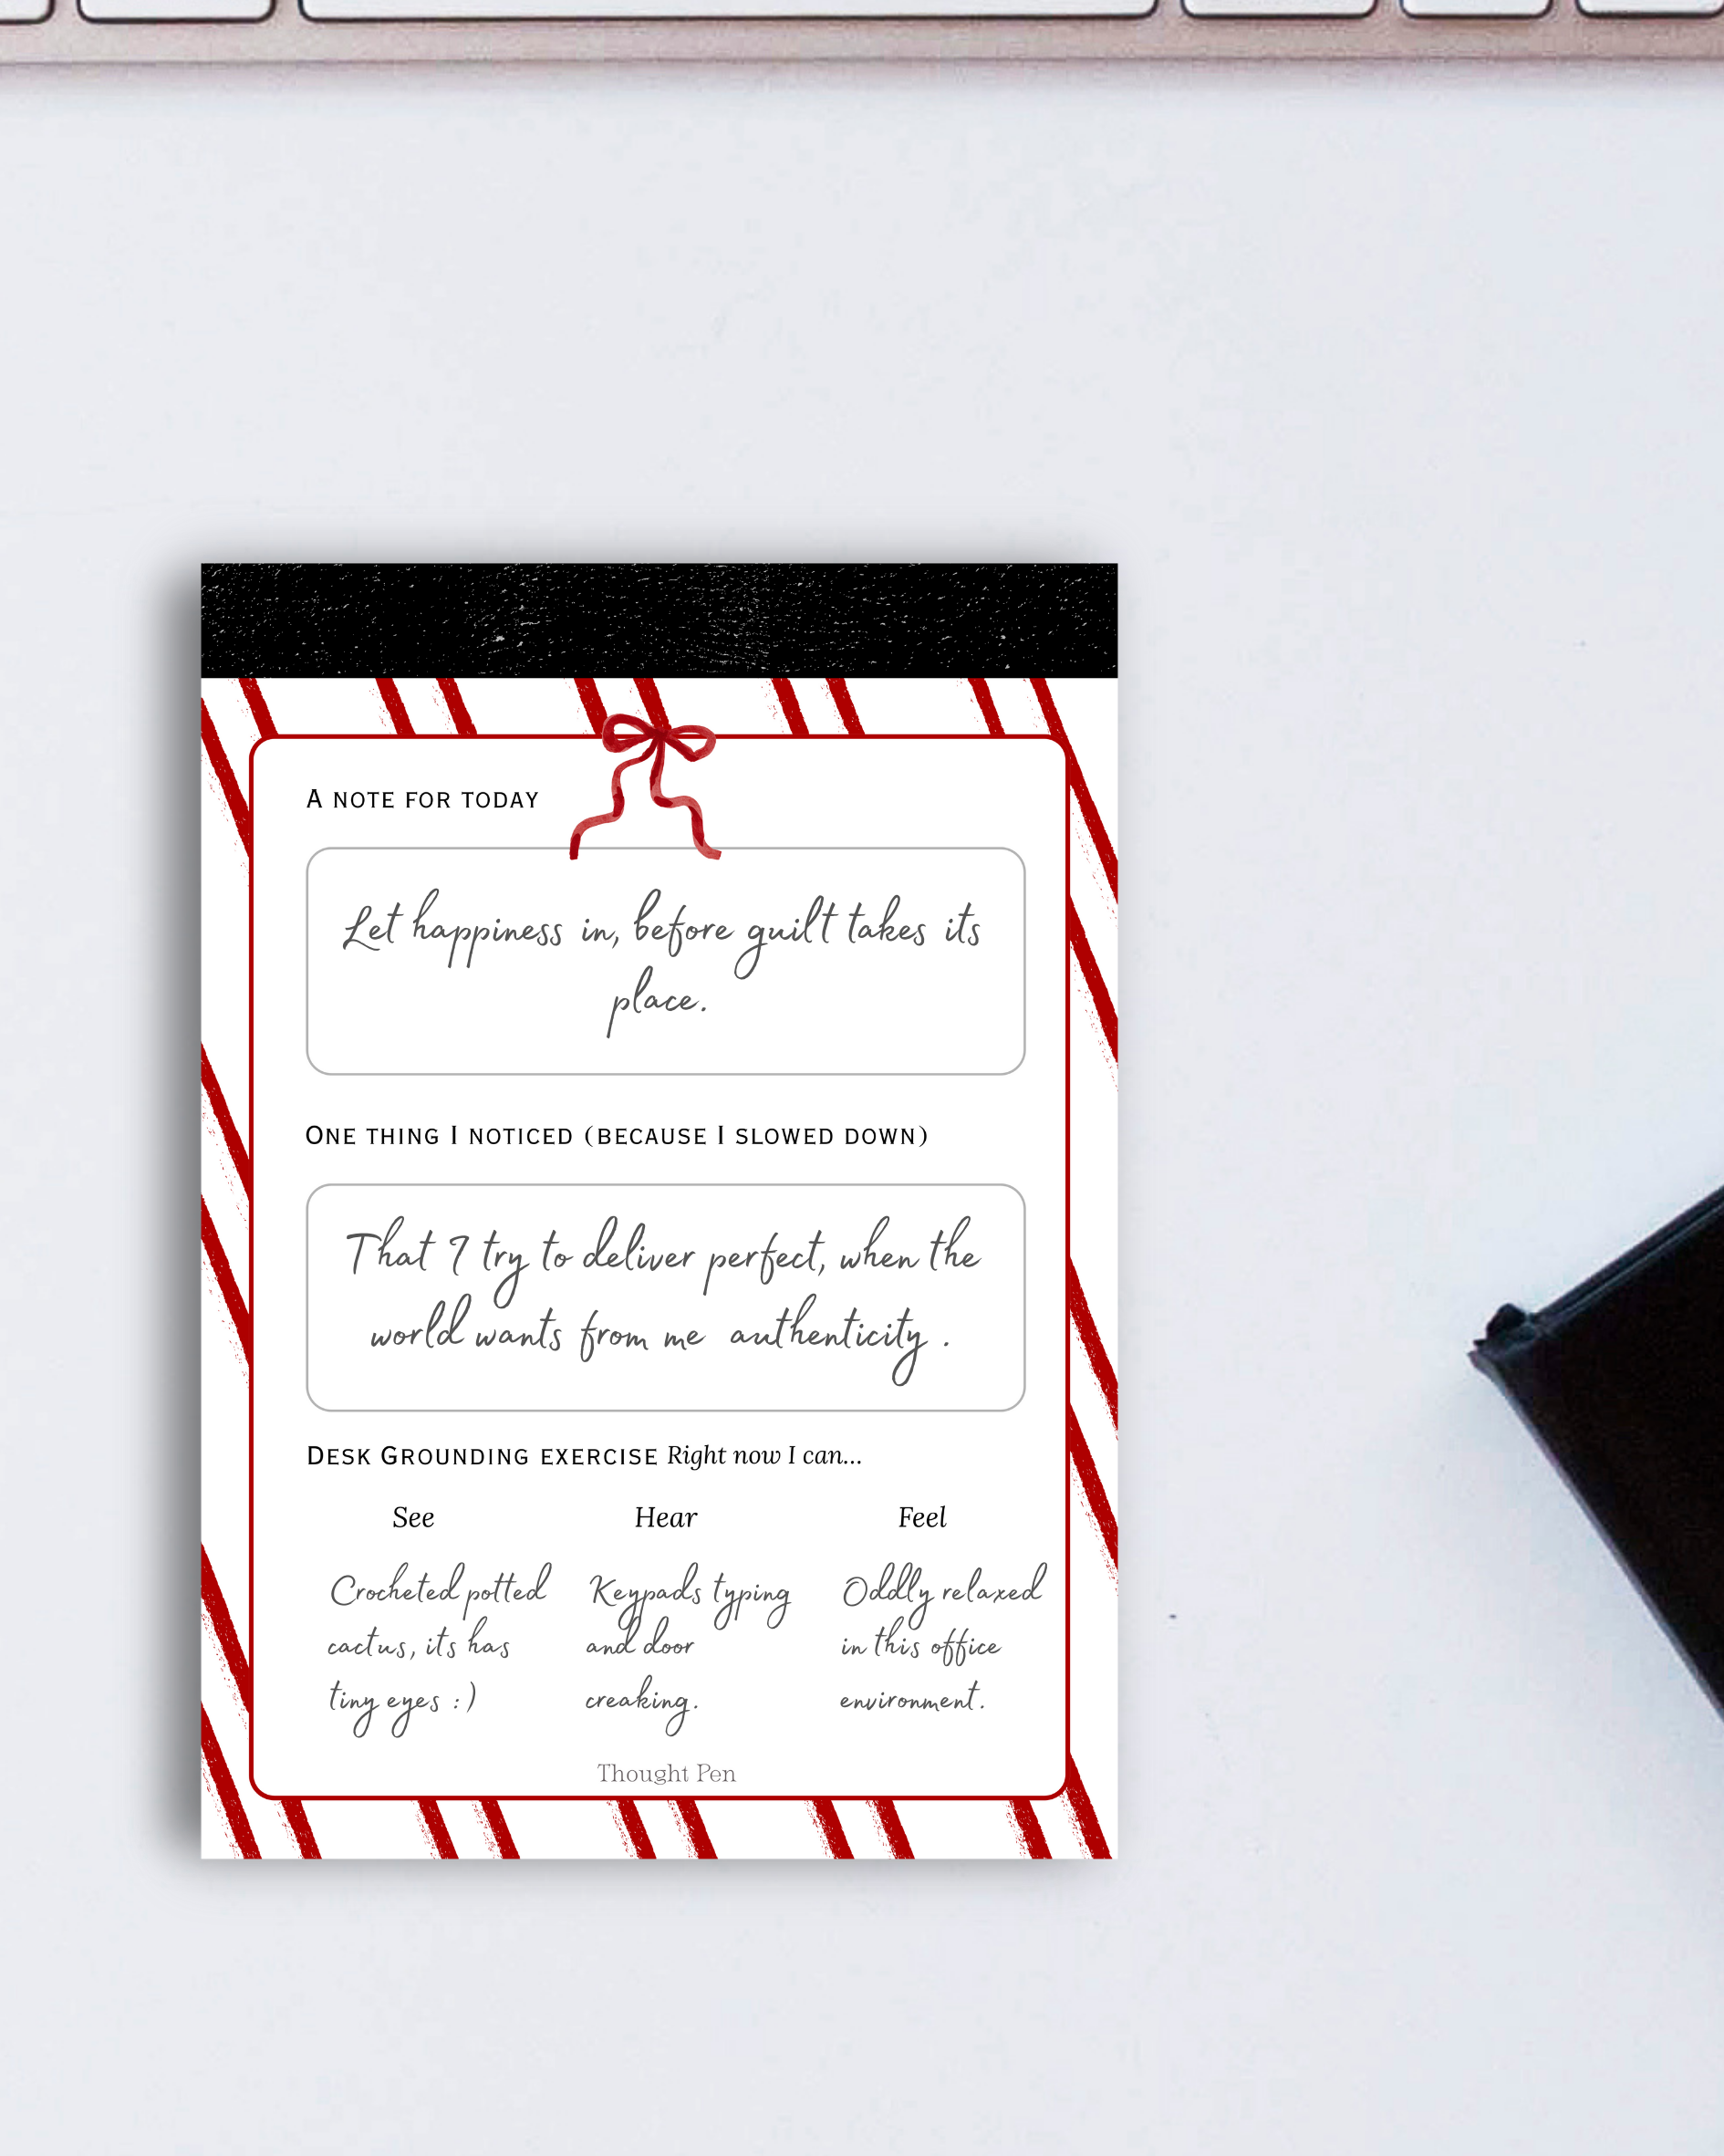 A NOTE FOR TODAY
Let happiness in, before guilt takes its
place.
ONE THING I NOTICED (BECAUSE I SLOWED DOWN)
That I try to deliver perfect, when the
world wants from me authenticity .
DESK GROUNDING EXERCISE Right now I can...
See Hear Feel
Crocheted potted Keypads typing Oddly relaxed
cactus, its has and door in this office
tiny eyes :) creaking. environment.
Thought Pen